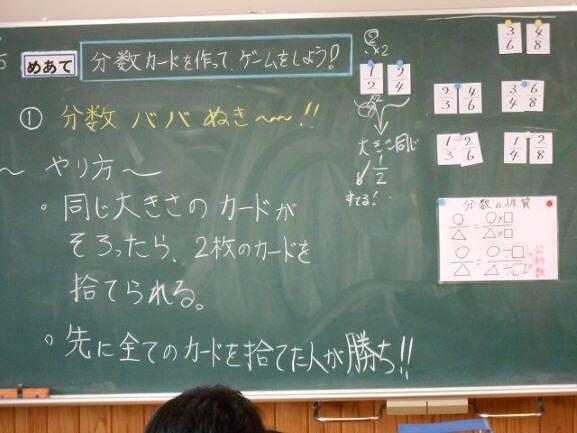 めあて
分数カードを作って、ゲームをしよう！
① 分数 ババ ぬき〜!!
〜 やり方 〜
・同じ大きさの カードが
そろったら、2枚のカードを
捨てられる。
・先に全てのカードを捨てた人が勝ち!!
×2
1/2 2/4
大きさ同じ
1/2
すてる！
3/6 4/8
2/3 4/6
3/4 6/8
1/3 2/6
1/4 2/8
分数の性質
○/△ = ○×□/△×□
○/△ = ○÷□/△÷□
公約数